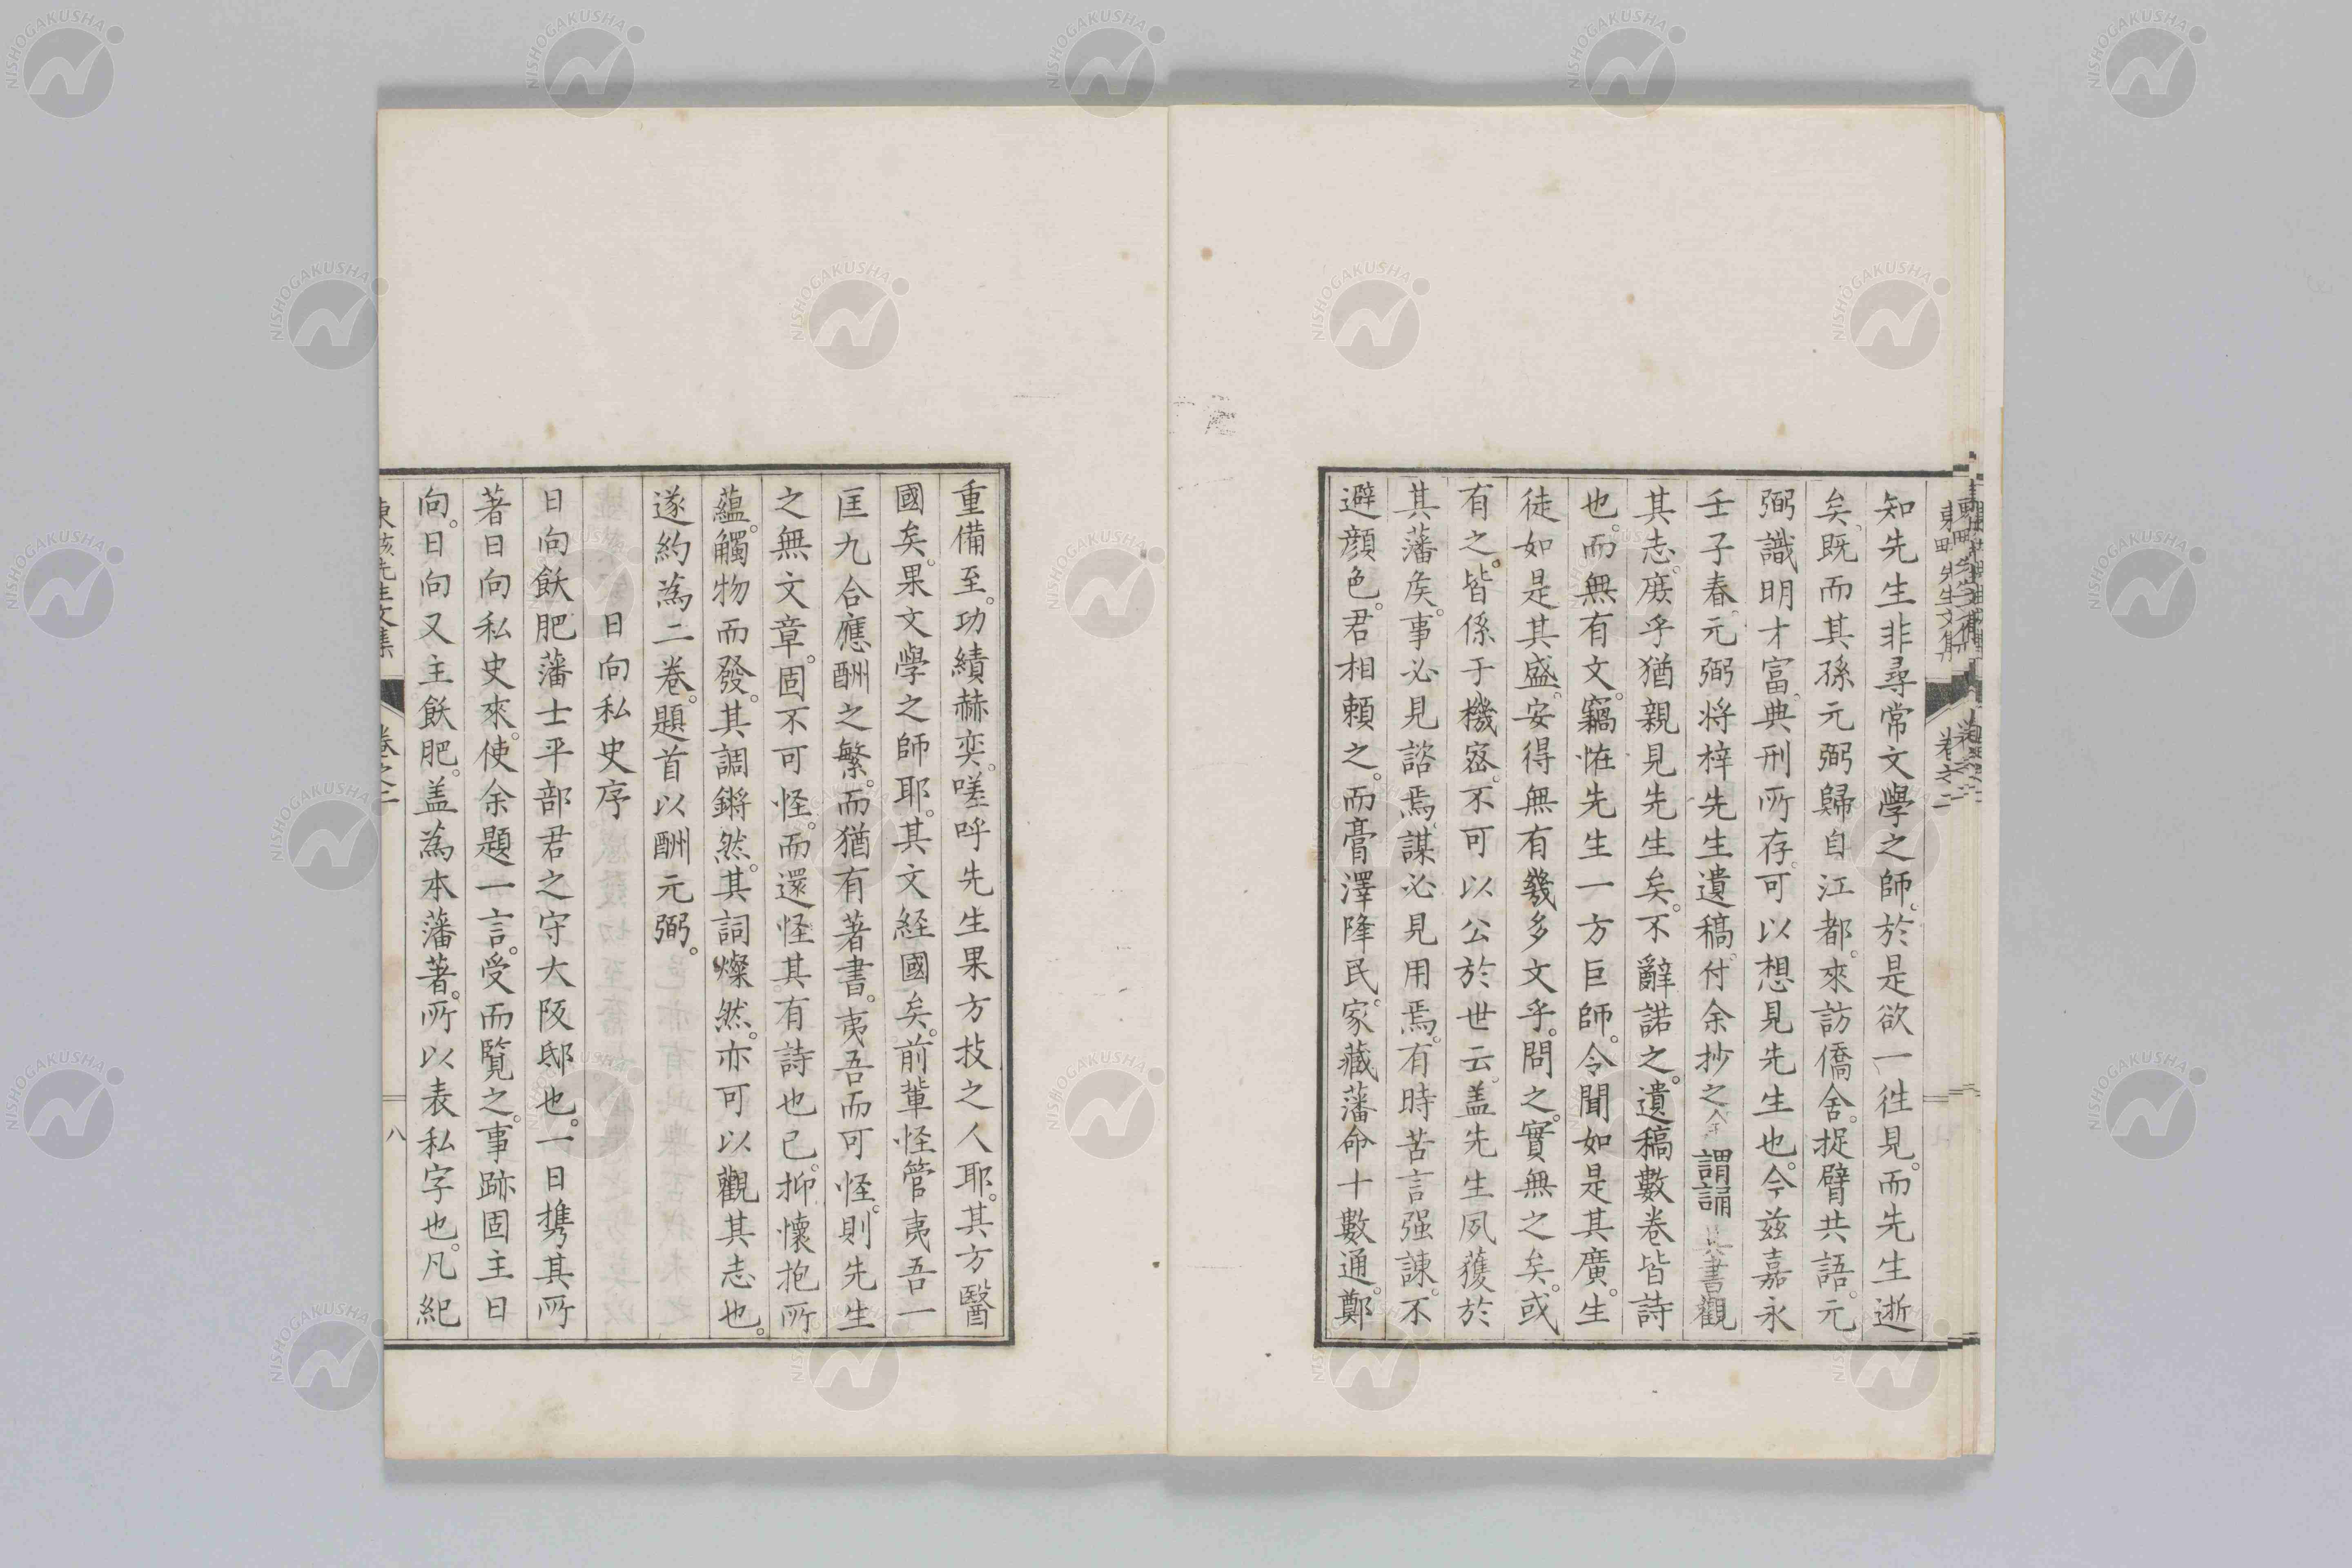 知先生非尋常文學之師。於是欲一徃見。而先生逝
矣。既而其孫元弼歸自江都。來訪僑舍。捉臂共語。元
弼識明才富。典刑所存。可以想見先生也。今茲嘉永
壬子春。元弼将梓先生遺稿。付余抄之余謂誦其書觀
其志。庻乎猶親見先生矣。不辭諾之。遺稿數卷皆詩
也。而無有文。竊恠先生一方巨師。令聞如是其廣。生
徒如是其盛。安得無有幾多文乎。問之。實無之矣。或
有之。皆係于機宻。不可以公於世云。盖先生夙獲於
其藩矦。事必見諮焉。謀必見用焉。有時苦言强諌。不
避顔色。君相頼之。而膏澤降民。家藏藩命十數通。鄭
重備至。功績赫奕。嗟呼先生果方技之人耶。其方醫
國矣。果文學之師耶。其文経國矣。前輩怪管夷吾一
匡九合應酬之繁。而猶有著書。夷吾而可怪。則先生
之無文章。固不可怪。而還怪其有詩也已。抑懷抱所
蘊。觸物而發。其調鏘然。其詞燦然。亦可以觀其志也。
遂約為二卷。題首以酬元弼。
日向私史序
日向飫肥藩士平部君之守大阪邸也。一日携其所
著日向私史來。使余題一言。受而覧之。事跡固主日
向。日向又主飫肥。盖為本藩著。所以表私字也。凡紀
先生文集
卷之二
八
NISHOGAKUSHA